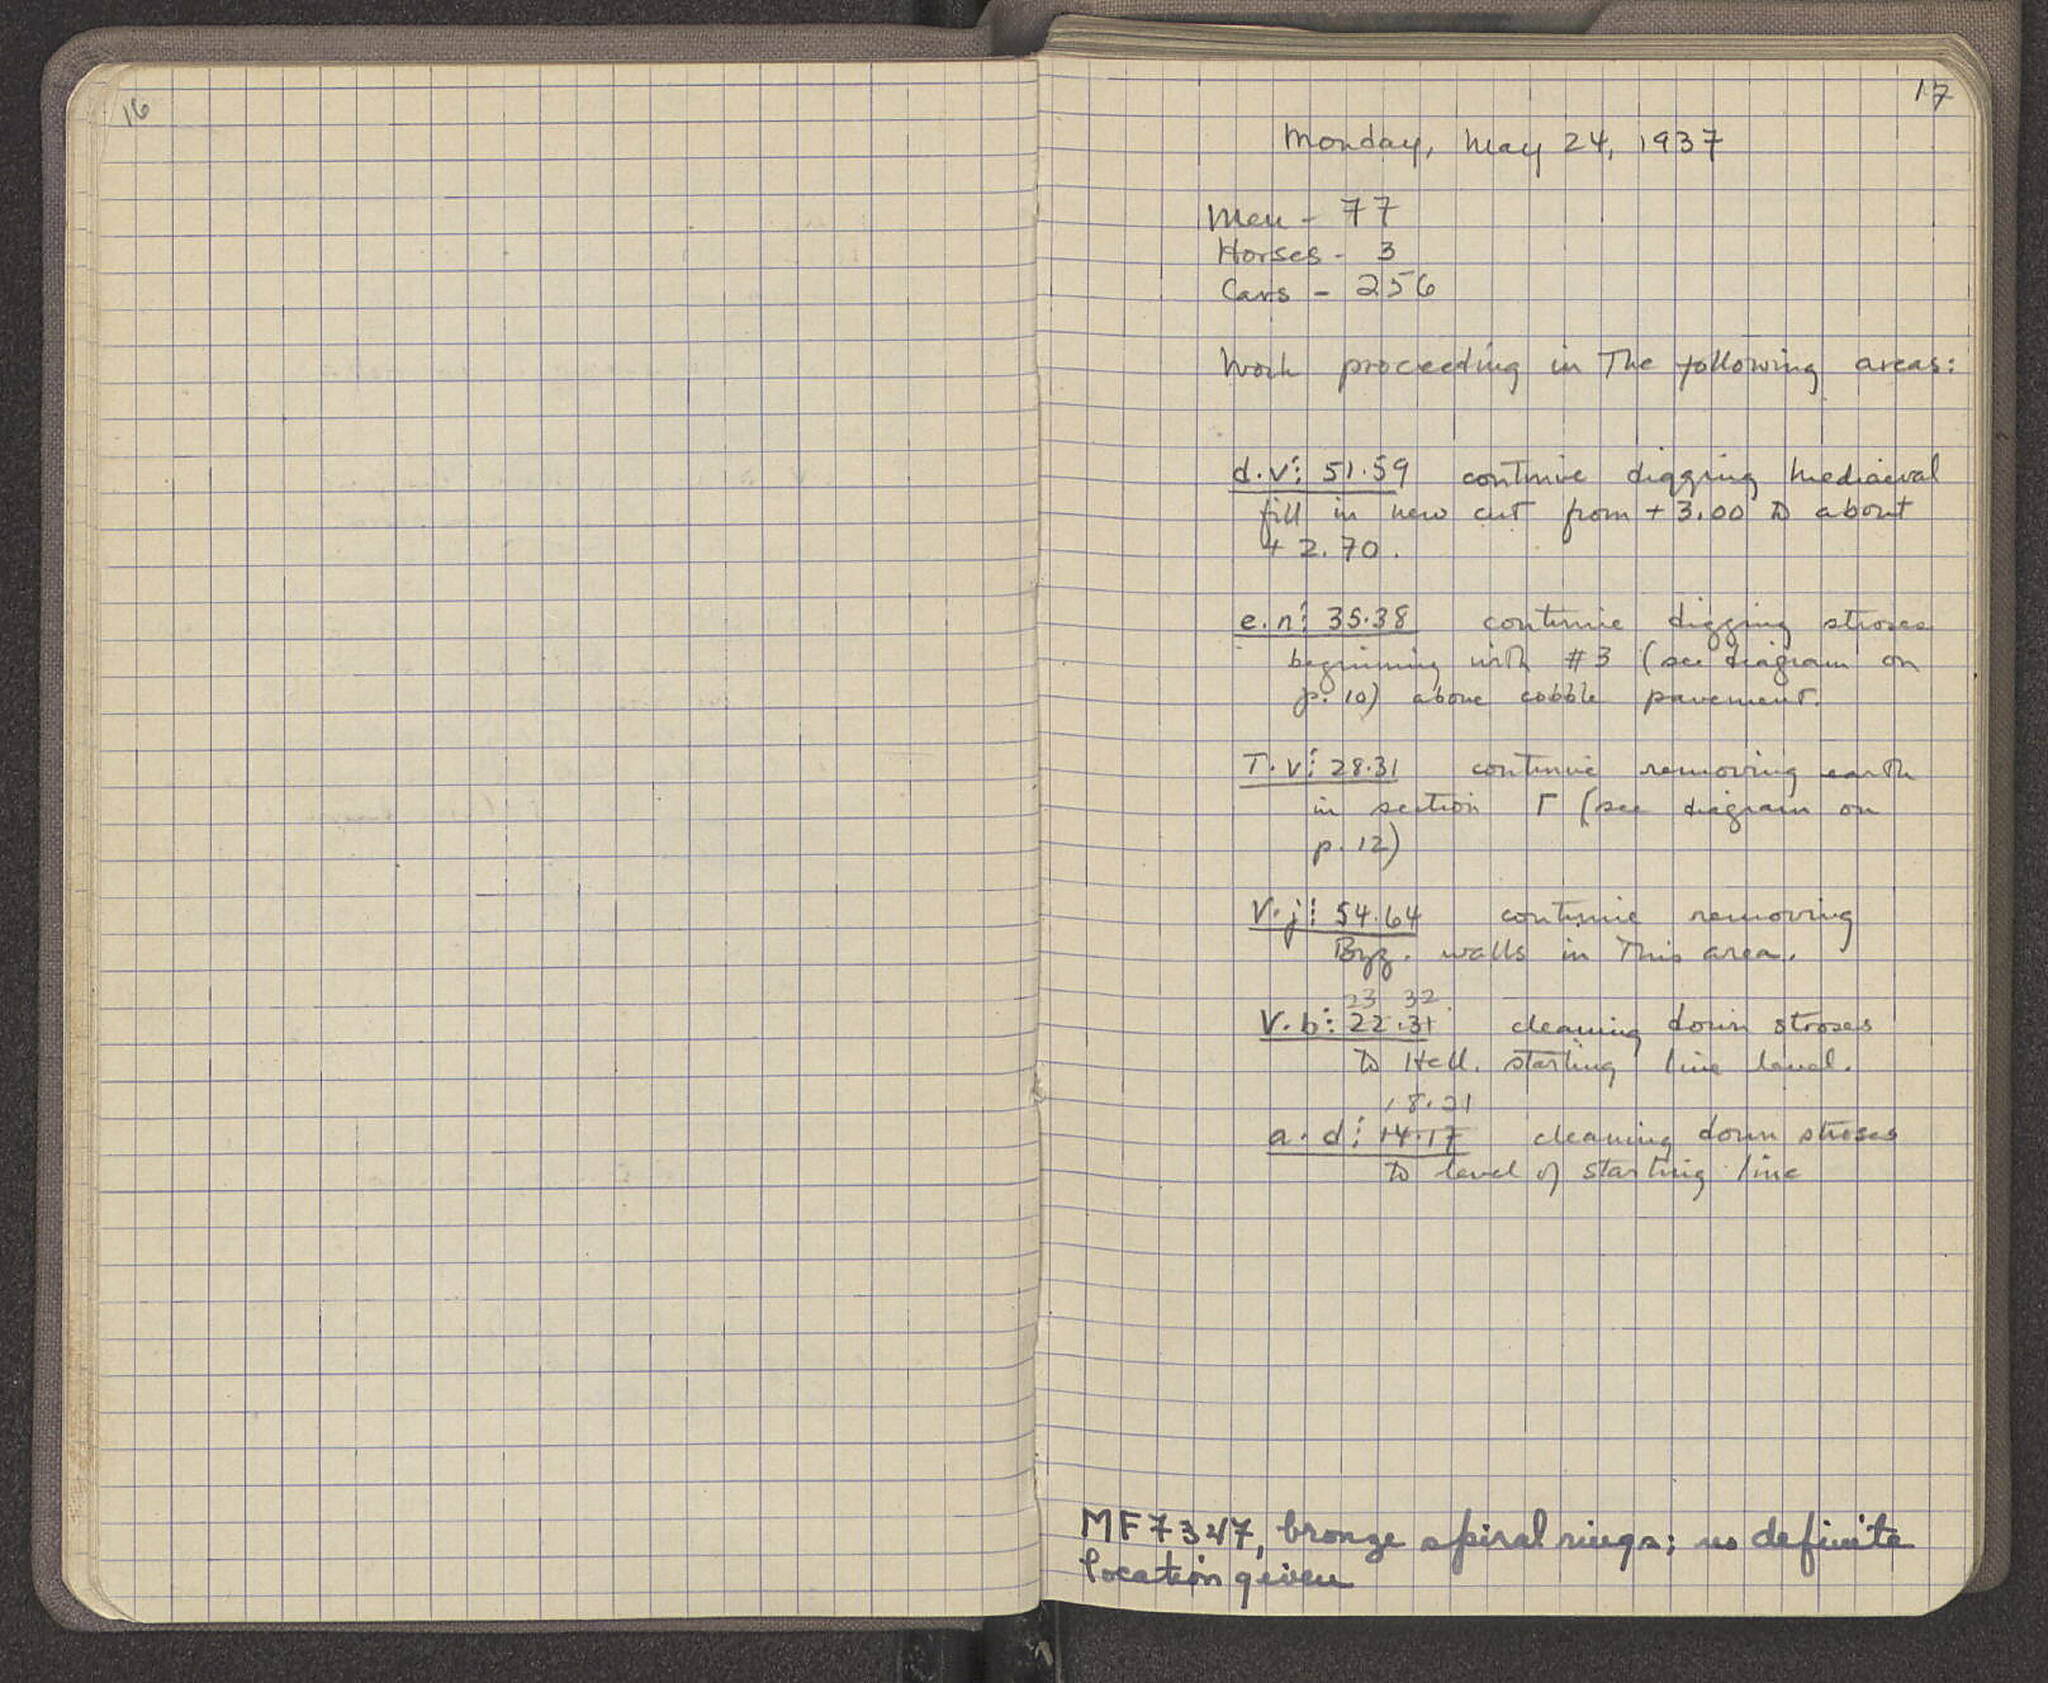 16
17
Monday, May 24, 1937
Men - 77
Horses - 3
Cars - 256
Work proceeding in The following areas:
d.v: 51.59 continue digging mediaeval
fill in new cut from +3.00 to about
+2.70.
e.n: 35.38 continue digging stroses
beginning with #3 (see diagram on
p. 10) above cobble pavement.
T.v: 28.31 continue removing earth
in section Γ (see diagram on
p. 12)
V.j: 54.64 continue removing
Byz. walls in This area.
23 32
V.b: 22.31 cleaning down stroses
to Hell. starting line level.
18.21
a.d: 14.17 cleaning down stroses
to level of starting line
MF 7347, bronze spiral rings; no definite
location given